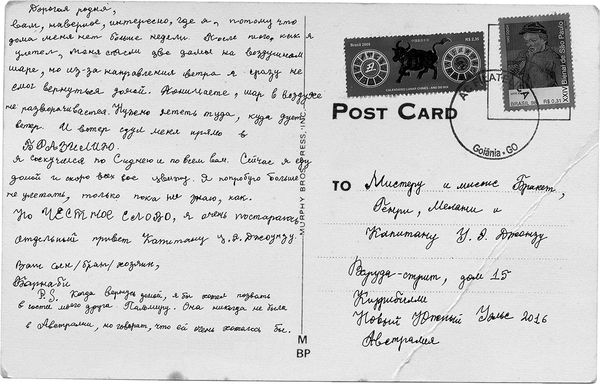 Дорогая родня,
вам, наверное, интересно, где я, потому что
дома меня нет больше недели. После того, как я
улетел, таща сквозь две дома на воздушном
шаре, но из-за направления ветра я сразу не
смог вернуться домой. Понимаете, шар в воздухе
не разворачивается. Нужно лететь туда, куда дует
ветер. И ветер сдул меня прямо в
БРАЗИЛИЮ.
Я соскучился по Сиднею и по всем вам. Сейчас я еду
домой и скоро всех вас увижу. Я попробую больше
не улетать, только пока не знаю, как.
Но ЧЕСТНОЕ СЛОВО, я очень постараюсь.
Отдельный привет Капитану У.Э. Джонзу.
Ваш сын/брат/хозяин,
Барнаби
P.S. Когда вернусь домой, я бы хотел позвать
в гости моего друга Пальмиру. Она никогда не была
в Австралии, но говорит, что ей очень хотелось бы.
MURPHY BROS. PRESS, INC.
M
BP
Brasil 2009
R$ 2,35
CALENDÁRIO LUNAR CHINÊS - ANO DO BOI
XXIV Bienal de São Paulo
BRASIL 98
R$ 0,31
Goiânia - GO
POST CARD
TO
Мистеру и миссис Бракет,
Генри, Мелани и
Капитану У.Э. Джонзу
Вруда-стрит, дом 15
Киррибилли
Новый Южный Уэльс 2016
Австралия